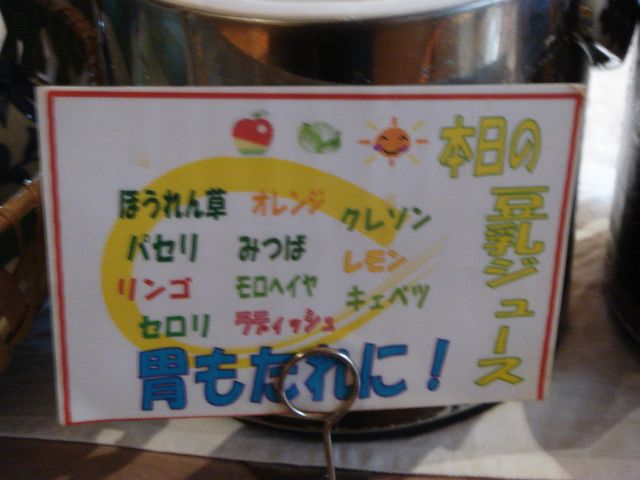 本日の
豆乳ジュース
ほうれん草 オレンジ クレソン
パセリ みつば レモン
リンゴ モロヘイヤ キャベツ
セロリ ラディッシュ
胃もたれに！